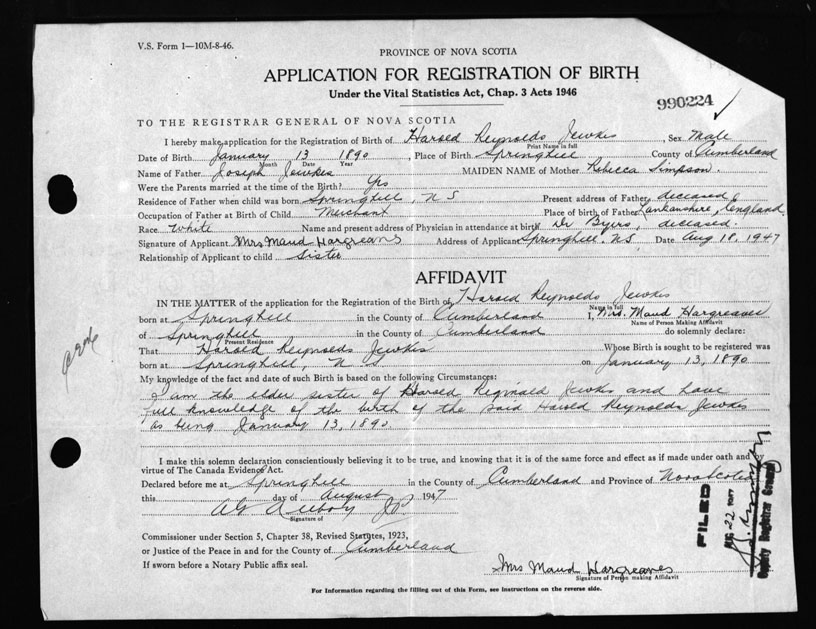 V.S. Form 1—10M-8-46.
PROVINCE OF NOVA SCOTIA
APPLICATION FOR REGISTRATION OF BIRTH
Under the Vital Statistics Act, Chap. 3 Acts 1946
990224
TO THE REGISTRAR GENERAL OF NOVA SCOTIA
I hereby make application for the Registration of Birth of Harold Reynolds Jewkes Sex Male
Print Name in full
Date of Birth January 13 1890, Place of Birth Springhill County of Cumberland
Month Date Year
Name of Father Joseph Jewkes MAIDEN NAME of Mother Rebecca Simpson.
Were the Parents married at the time of the Birth? Yes
Residence of Father when child was born Springhill, N S Present address of Father deceased
Occupation of Father at Birth of Child Merchant Place of birth of Father Lankanshire, England.
Race White Name and present address of Physician in attendance at birth Dr Byers, deceased.
Signature of Applicant Mrs Maud Hargreaves Address of Applicant Springhill, N.S. Date Aug 18, 1947
Relationship of Applicant to child Sister
AFFIDAVIT
IN THE MATTER of the application for the Registration of the Birth of Harold Reynolds Jewkes
Name in full
born at Springhill in the County of Cumberland I, Mrs. Maud Hargreaves
Name of Person Making Affidavit
of Springhill in the County of Cumberland do solemnly declare:
Present Residence
That Harold Reynolds Jewkes Whose Birth is sought to be registered was
born at Springhill, N S on January 13, 1890
My knowledge of the fact and date of such Birth is based on the following Circumstances:
I am the older sister of Harold Reginald Jewkes and have
full knowledge of the birth of the said Harold Reynolds Jewkes
as being January 13, 1890
I make this solemn declaration conscientiously believing it to be true, and knowing that it is of the same force and effect as if made under oath and by
virtue of The Canada Evidence Act.
Declared before me at Springhill in the County of Cumberland and Province of Nova Scotia
this day of August 1947
Signature of
Commissioner under Section 5, Chapter 38, Revised Statutes, 1923,
or Justice of the Peace in and for the County of Cumberland
If sworn before a Notary Public affix seal.
Mrs Maud Hargreaves
Signature of Person making Affidavit
For Information regarding the filling out of this Form, see Instructions on the reverse side.
FILED
AUG 22 1947
Deputy Registrar General